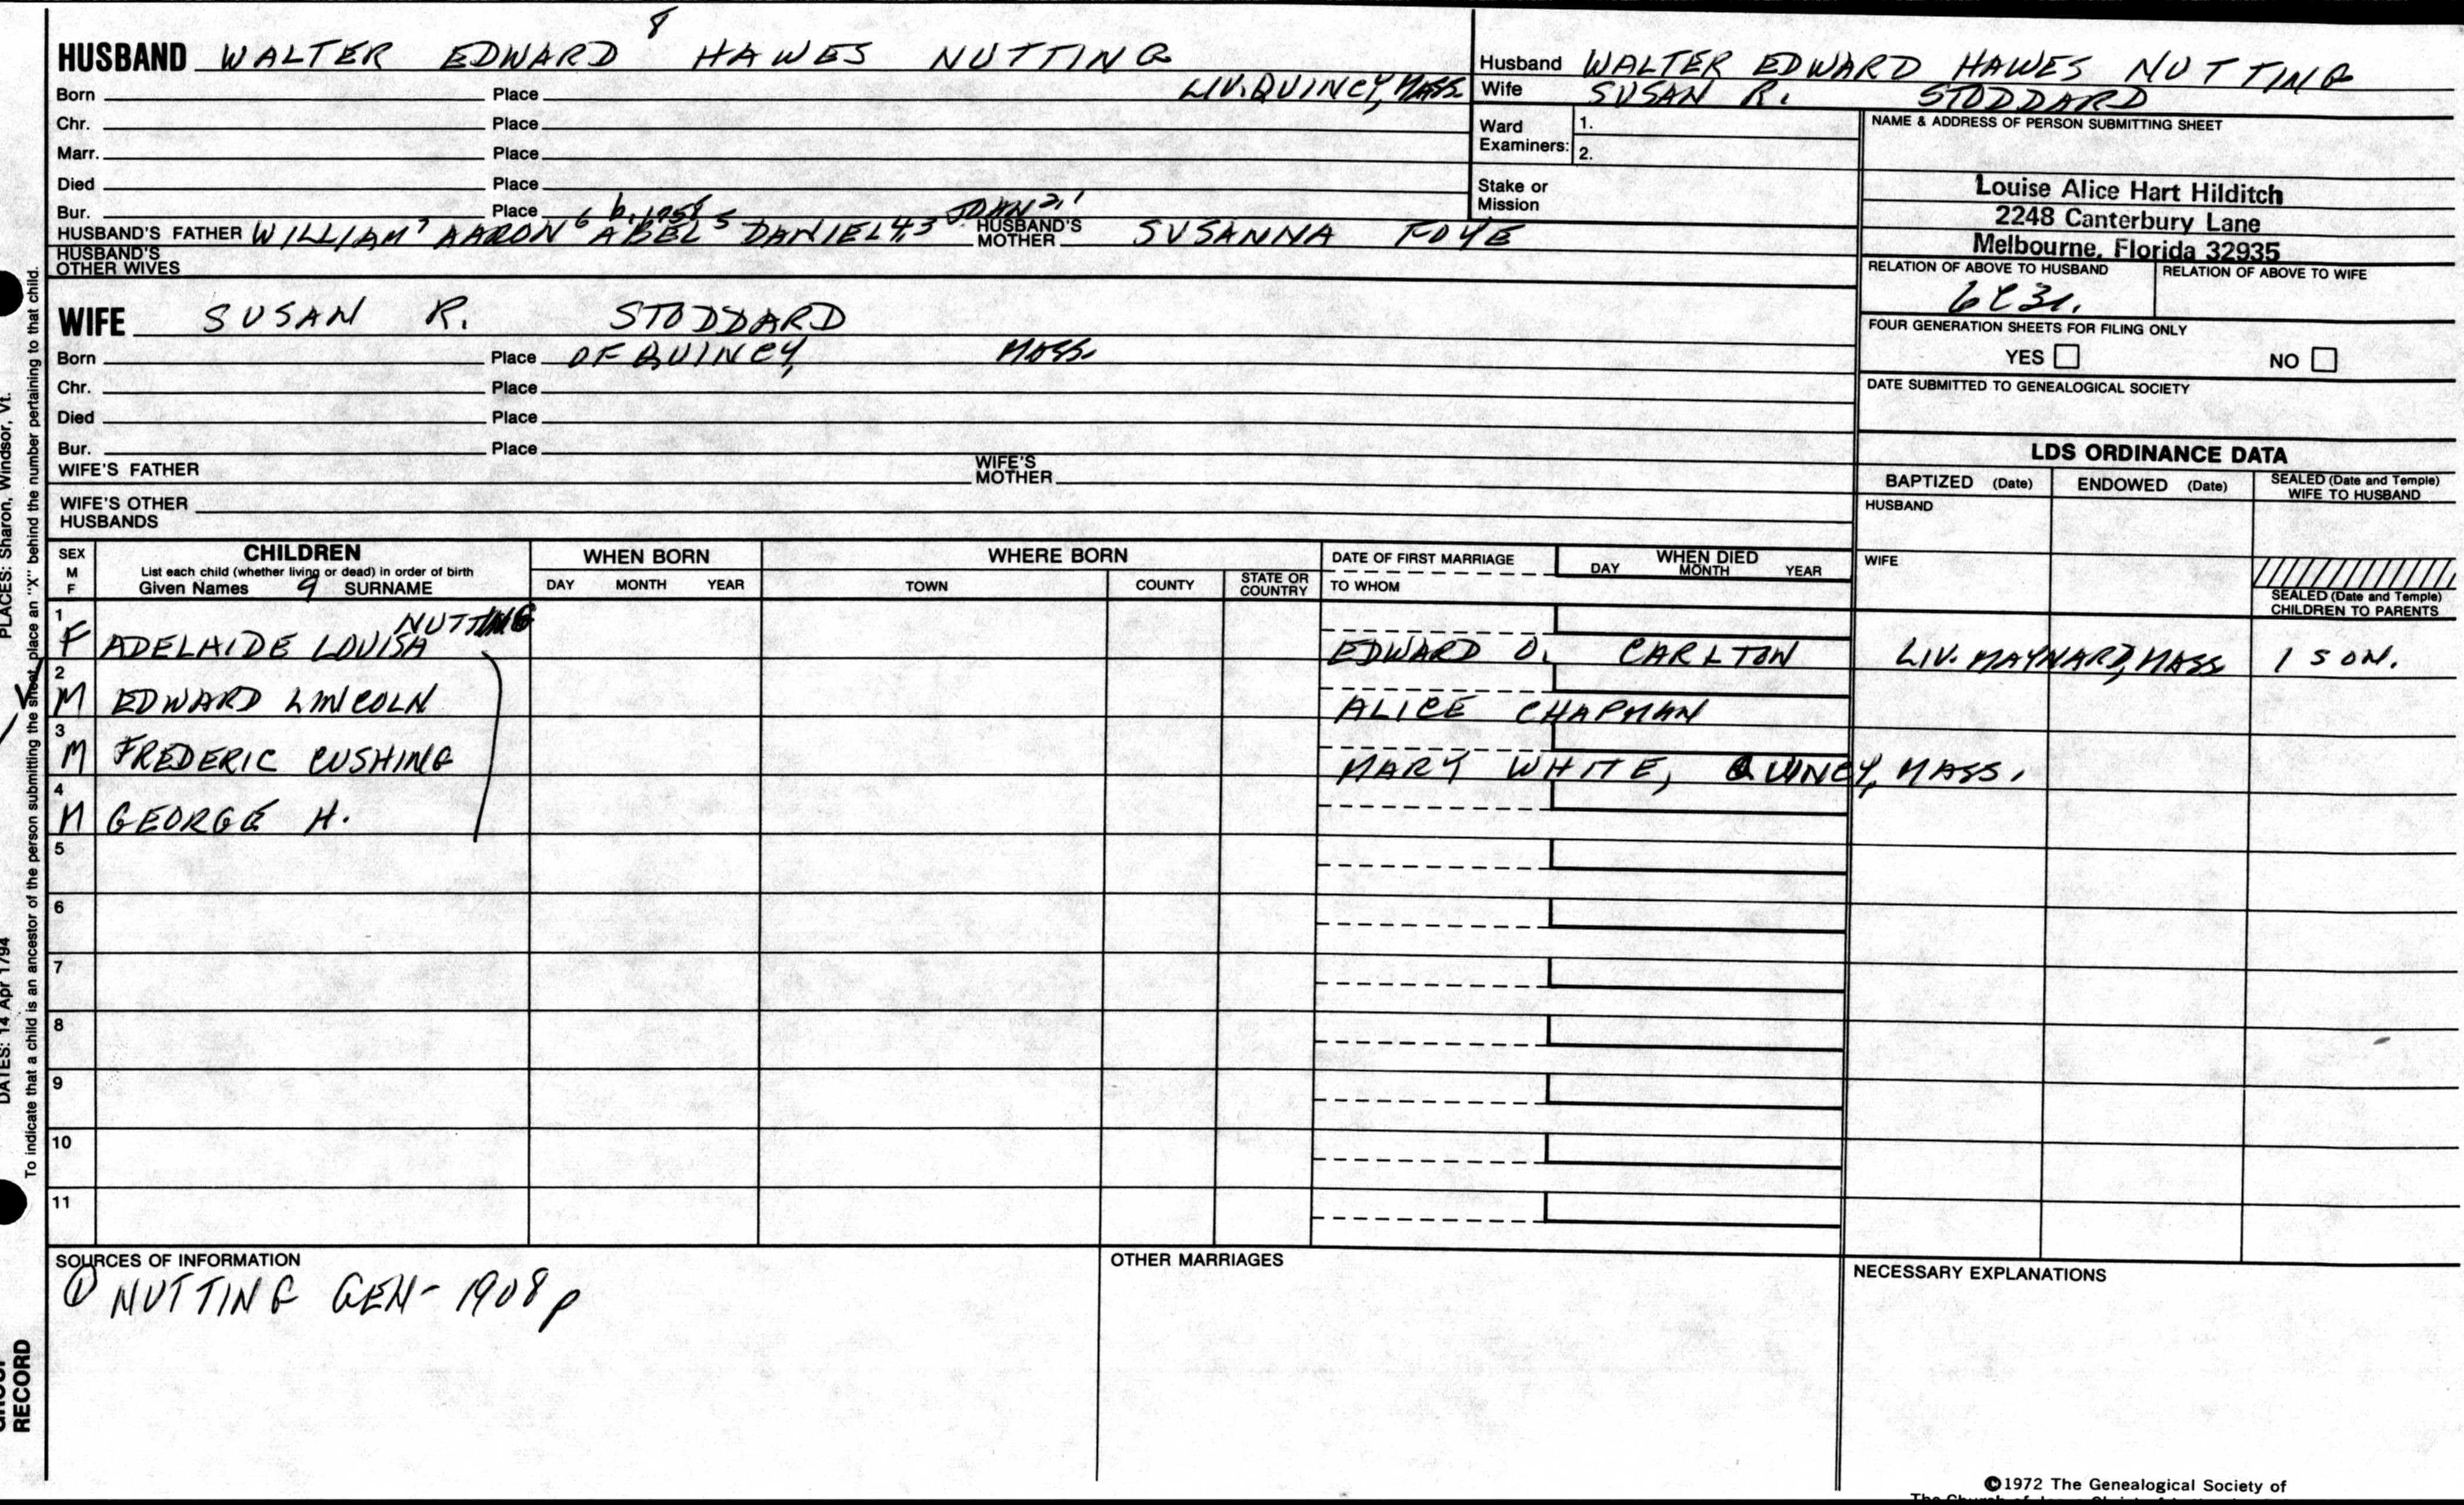 8
HUSBAND WALTER EDWARD HAWES NUTTING
Born Place LIV. QUINCY, MASS.
Chr. Place
Marr. Place
Died Place
Bur. Place JOHN 2,1
HUSBAND'S FATHER WILLIAM 7 AARON 6 ABEL 5 DANIEL 4,3 HUSBAND'S MOTHER SUSANNA FOYE
HUSBAND'S OTHER WIVES
WIFE SUSAN R. STODDARD
Born Place OF QUINCY, MASS.
Chr. Place
Died Place
Bur. Place
WIFE'S FATHER WIFE'S MOTHER
WIFE'S OTHER HUSBANDS
Husband WALTER EDWARD HAWES NUTTING
Wife SUSAN R. STODDARD
Ward Examiners: 1.
2.
Stake or Mission
NAME & ADDRESS OF PERSON SUBMITTING SHEET
Louise Alice Hart Hilditch
2248 Canterbury Lane
Melbourne, Florida 32935
RELATION OF ABOVE TO HUSBAND RELATION OF ABOVE TO WIFE
6C3r.
FOUR GENERATION SHEETS FOR FILING ONLY
YES NO
DATE SUBMITTED TO GENEALOGICAL SOCIETY
LDS ORDINANCE DATA
BAPTIZED (Date) ENDOWED (Date) SEALED (Date and Temple) WIFE TO HUSBAND
HUSBAND
WIFE
SEALED (Date and Temple) CHILDREN TO PARENTS
SEX M F CHILDREN WHEN BORN WHERE BORN DATE OF FIRST MARRIAGE WHEN DIED
List each child (whether living or dead) in order of birth
Given Names 9 SURNAME DAY MONTH YEAR TOWN COUNTY STATE OR COUNTRY TO WHOM DAY MONTH YEAR
1 NUTTING
F ADELAIDE LOUISA EDWARD O. CARLTON LIV. MAYNARD, MASS 1 SON.
2
M EDWARD LINCOLN ALICE CHAPMAN
3
M FREDERIC CUSHING MARY WHITE, QUINCY, MASS.
4
M GEORGE H.
5
6
7
8
9
10
11
SOURCES OF INFORMATION OTHER MARRIAGES NECESSARY EXPLANATIONS
① NUTTING GEN- 1908 p
©1972 The Genealogical Society of
PLACES: Sharon, Windsor, Vt.
DATES: 14 Apr 1794
To indicate that a child is an ancestor of the person submitting the sheet, place an "X" behind the number pertaining to that child.
RECORD